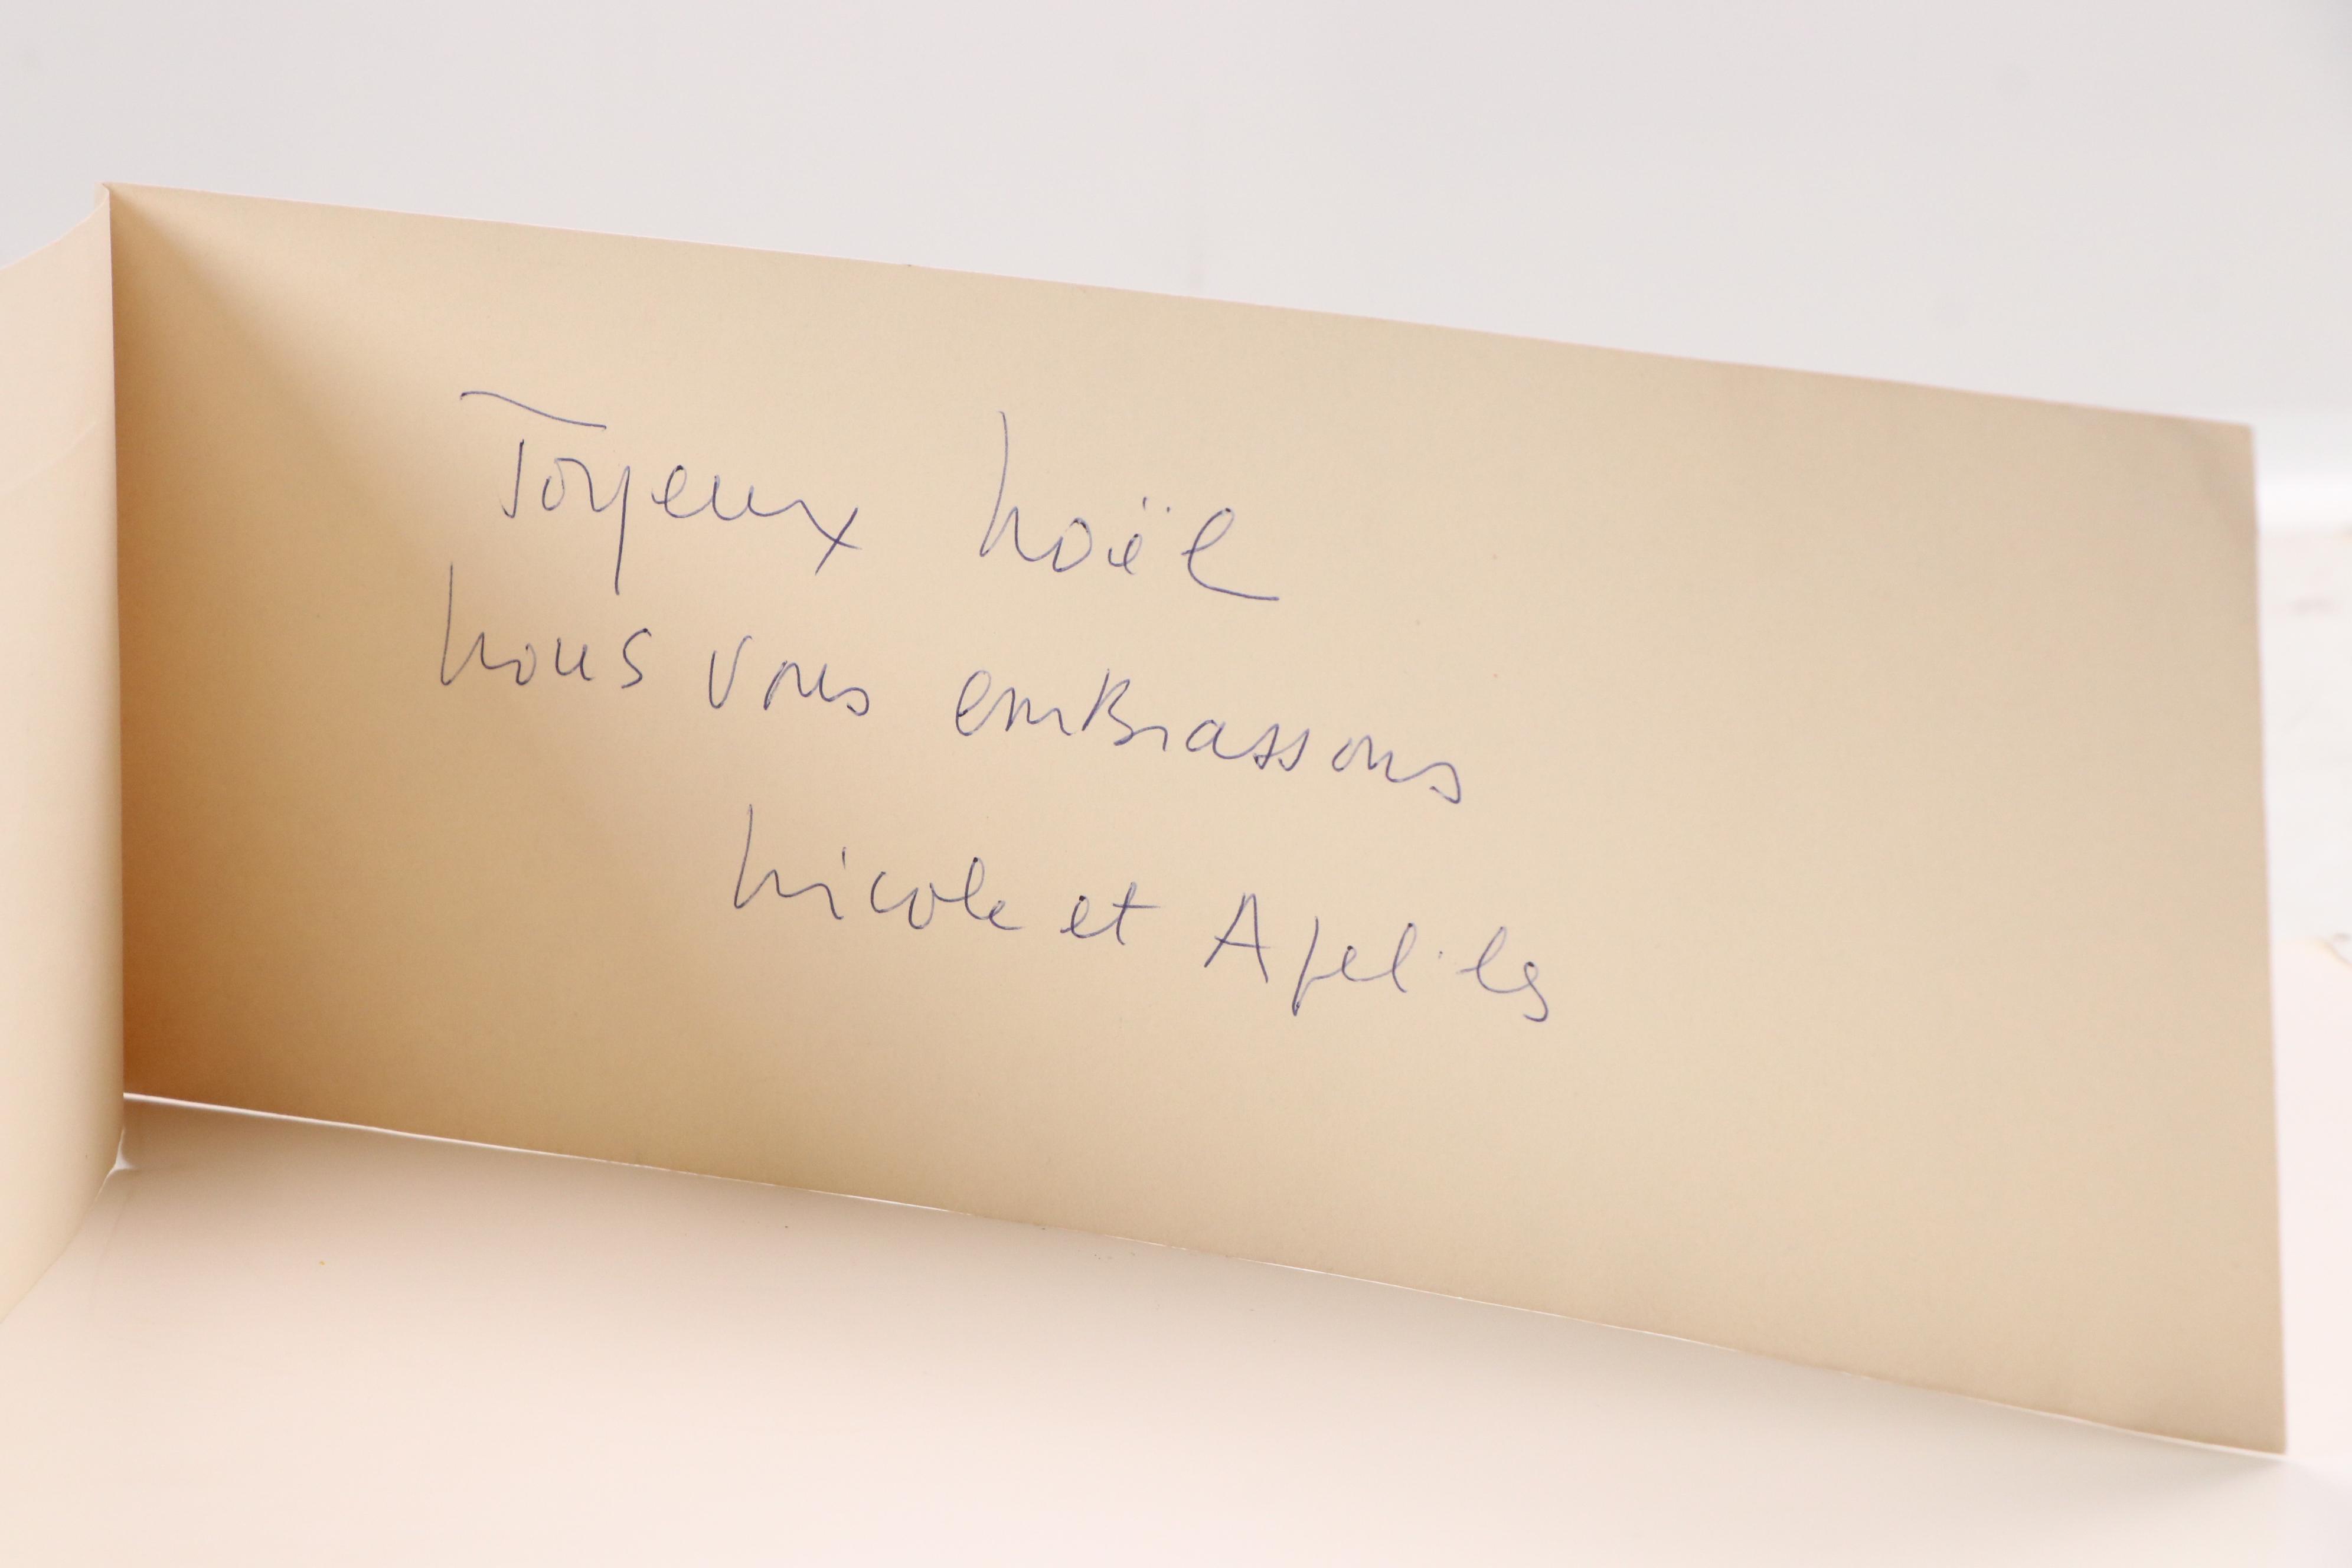 Joyeux Noël
Nous vous embrassons
Nicole et